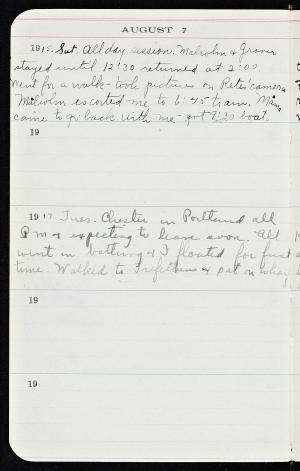 AUGUST 7
1915. Sat. All day session. Malcolm & Grover
stayed until 12:30 returned at 2:00.
Went for a walk - took pictures on Pete's camera
Malcolm escorted me to 6:45 train, Mama
came to go back with me - got 7:20 boat.
19
1917. Tues. Chester in Portland all
P M & expecting to leave soon. All
went in bathing & I floated for first
time. Walked to Trefethens & sat on whay
19
19